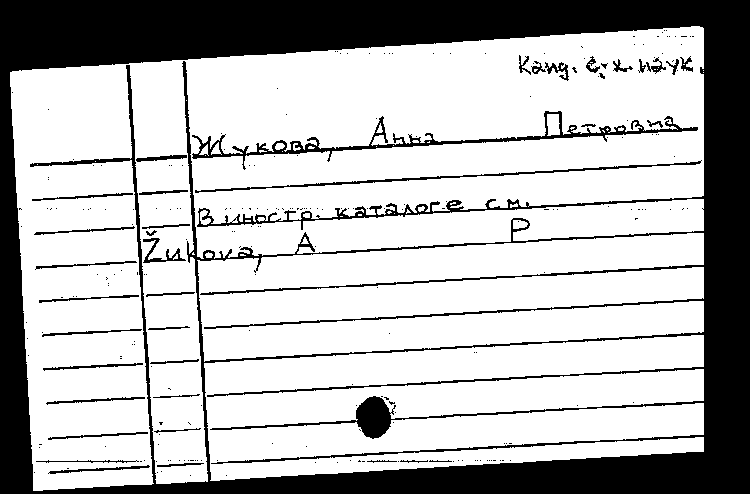 Канд. с.-х. наук.
Жукова, Анна Петровна
В иностр. каталоге см.
Žukova, A P